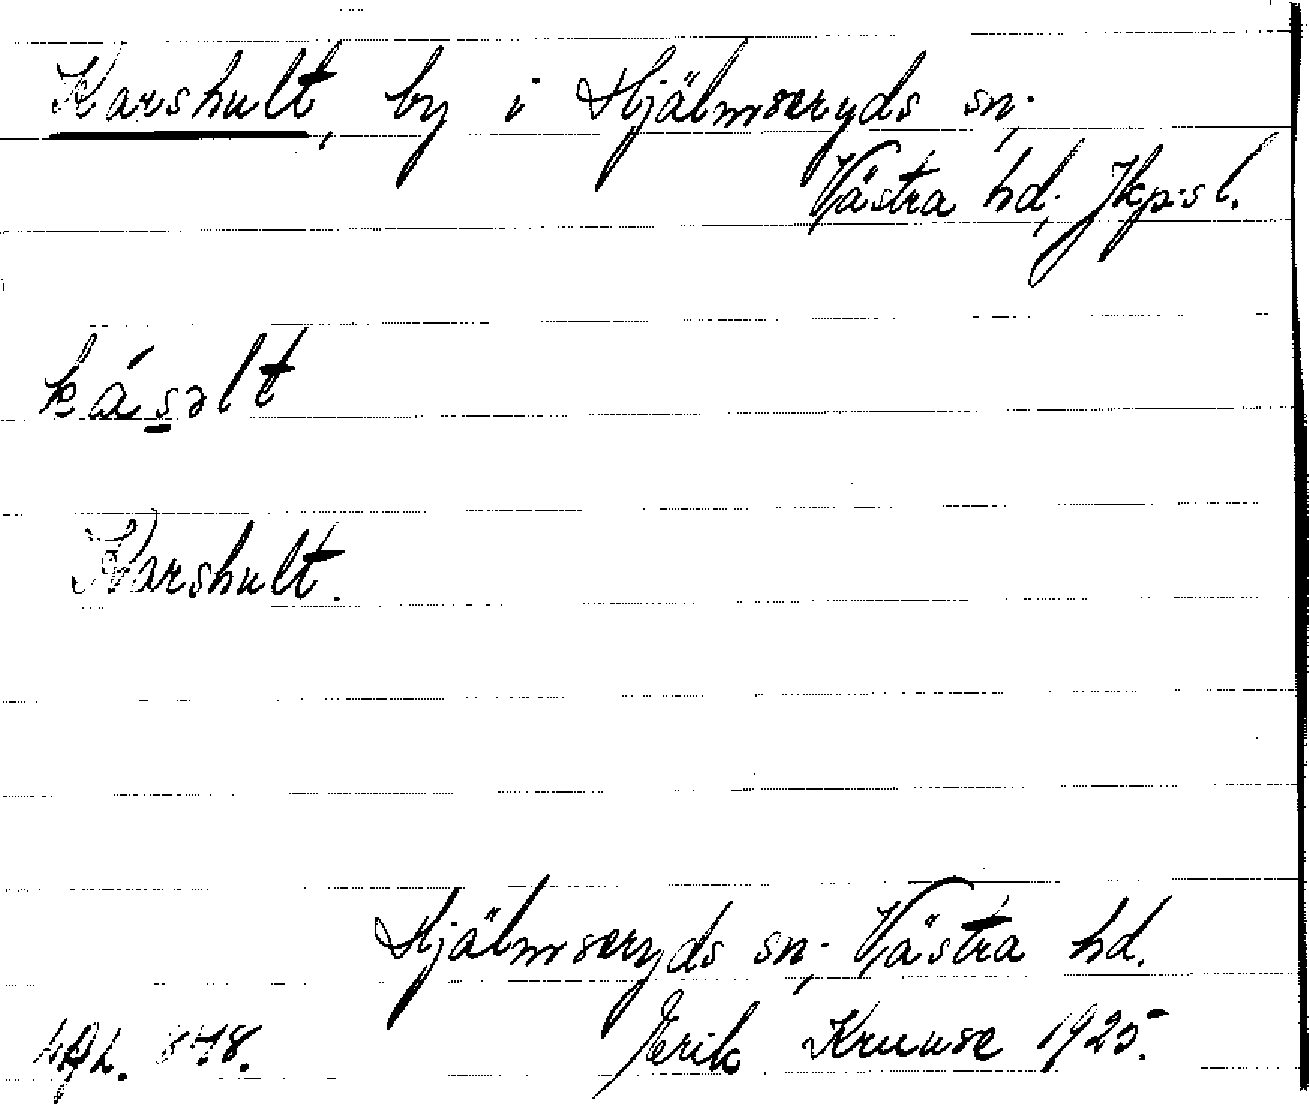 Karshult, by i Hjälmseryds sn.,
Västra hd., Jkp:sl.
kásəlt
Karshult.
Hjälmseryds sn., Västra hd.
Erik Kruuse 1925.